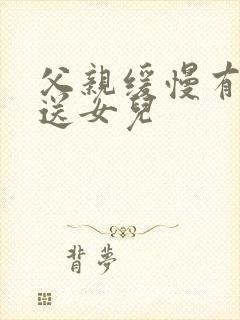 父親缓慢有
送女兒
背夢